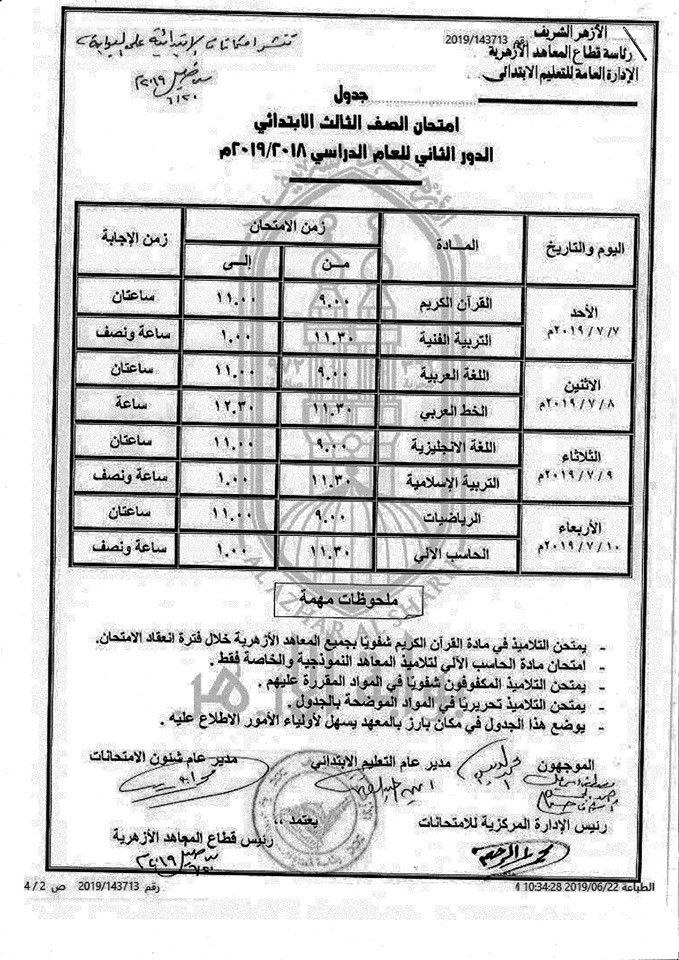 الأزهر الشريف
رقم 2019/143713
رئاسة قطاع المعاهد الأزهرية
الإدارة العامة للتعليم الابتدائي
تنشر امتحانات الابتدائية على البوابة
٢٠١٩
٦/٢٠
جدول
امتحان الصف الثالث الابتدائي
الدور الثاني للعام الدراسي ٢٠١٩/٢٠١٨م
اليوم والتاريخ المـادة زمن الامتحان زمن الإجابة
مـن إلـى
الأحد ٢٠١٩/٧/٧م القرآن الكريم ٩.٠٠ ١١.٠٠ ساعتان
التربية الفنية ١١.٣٠ ١.٠٠ ساعة ونصف
الاثنين ٢٠١٩/٧/٨م اللغة العربية ٩.٠٠ ١١.٠٠ ساعتان
الخط العربي ١١.٣٠ ١٢.٣٠ ساعة
الثلاثاء ٢٠١٩/٧/٩م اللغة الانجليزية ٩.٠٠ ١١.٠٠ ساعتان
التربية الإسلامية ١١.٣٠ ١.٠٠ ساعة ونصف
الأربعاء ٢٠١٩/٧/١٠م الرياضيات ٩.٠٠ ١١.٠٠ ساعتان
الحاسب الآلي ١١.٣٠ ١.٠٠ ساعة ونصف
AL AZHAR AL SHARIF
ملحوظات مهمة
- يمتحن التلاميذ في مادة القرآن الكريم شفويًا بجميع المعاهد الأزهرية خلال فترة انعقاد الامتحان.
- امتحان مادة الحاسب الآلي لتلاميذ المعاهد النموذجية والخاصة فقط .
- يمتحن التلاميذ المكفوفون شفويًا في المواد المقررة عليهم .
- يمتحن التلاميذ تحريريًا في المواد الموضحة بالجدول .
- يوضع هذا الجدول في مكان بارز بالمعهد يسهل لأولياء الأمور الاطلاع عليه .
الموجهون مدير عام التعليم الابتدائي مدير عام شئون الامتحانات
يعتمد ،،
رئيس الإدارة المركزية للامتحانات رئيس قطاع المعاهد الأزهرية
٢٠١٩
الطباعة 2019/06/22 10:34:28 رقم 2019/143713 ص 2 / 4